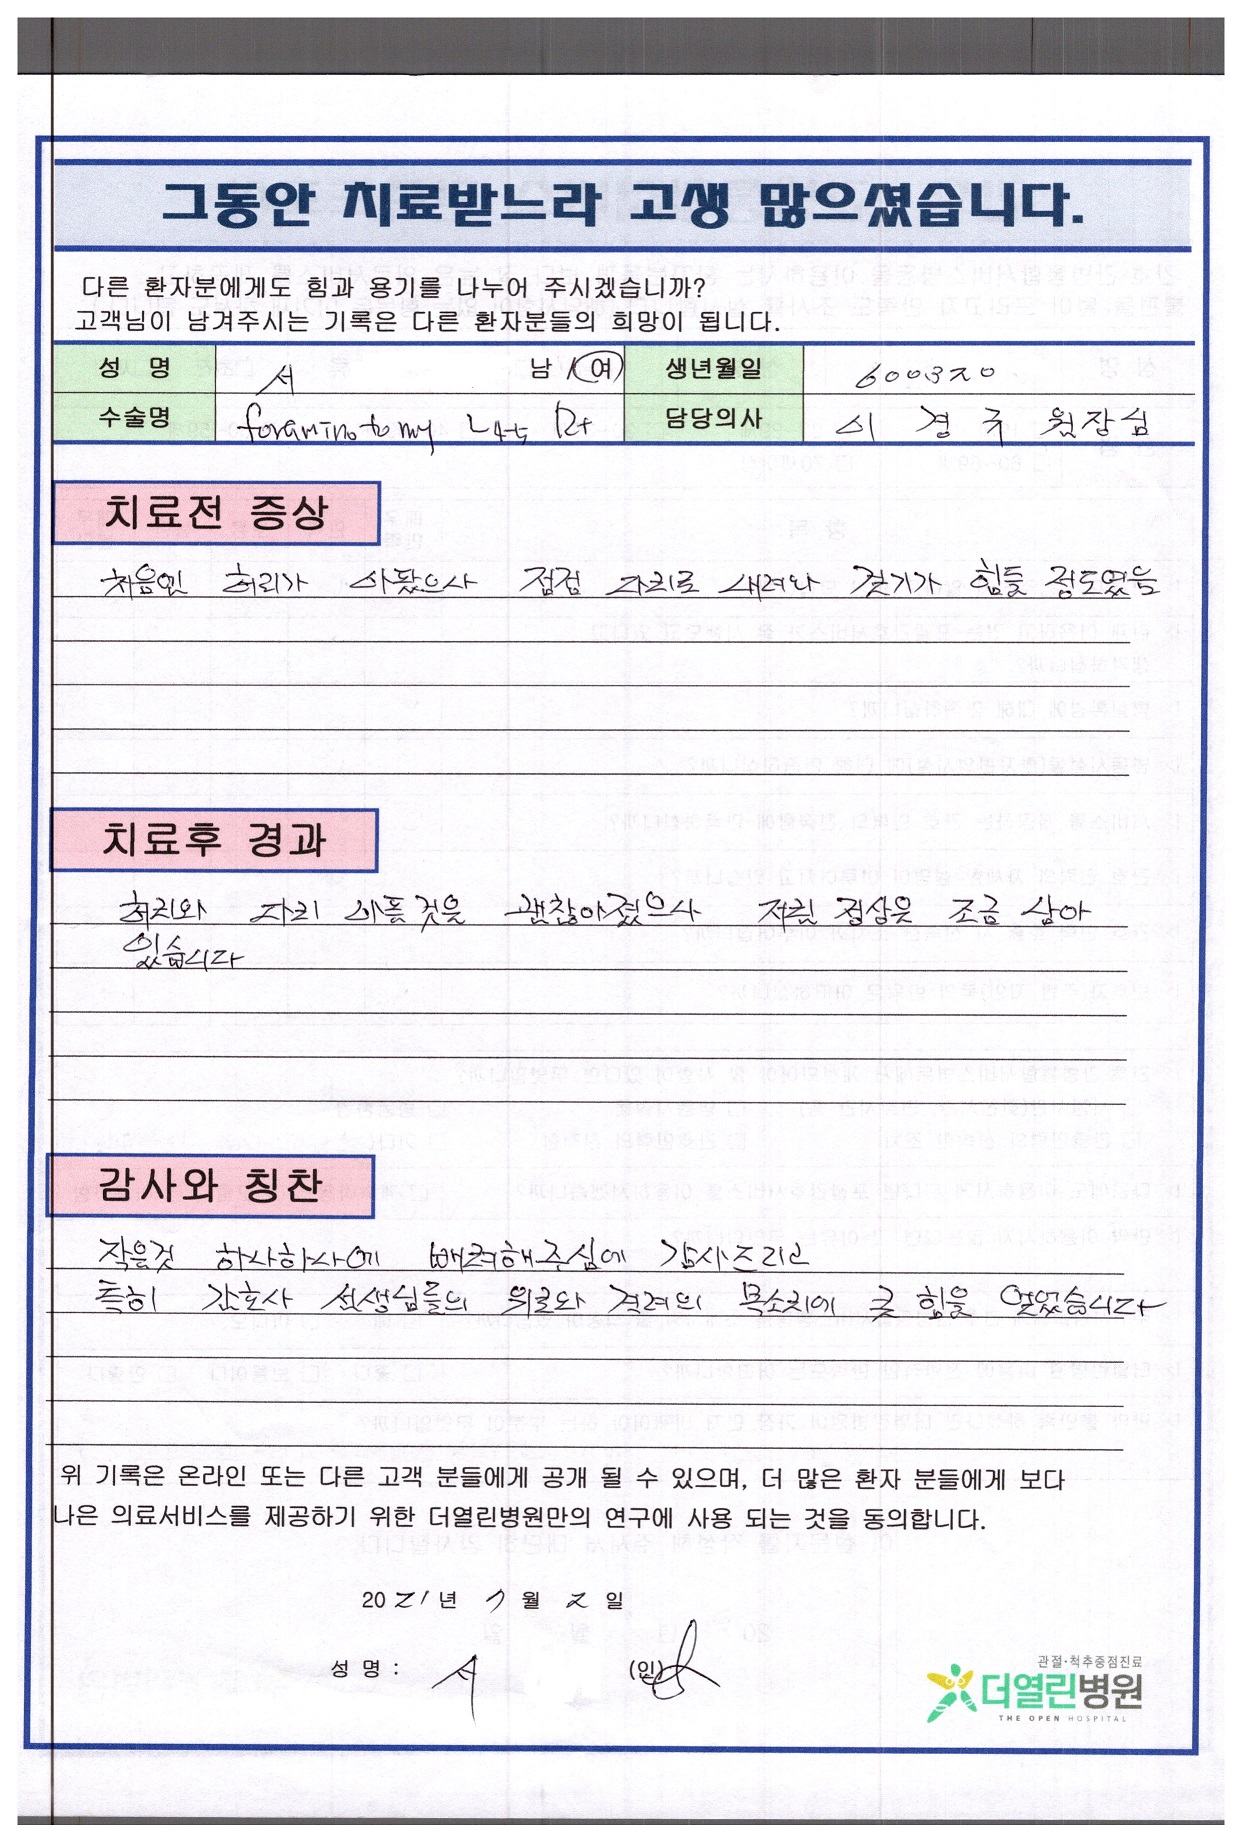 그동안 치료받느라 고생 많으셨습니다.
다른 환자분에게도 힘과 용기를 나누어 주시겠습니까?
고객님이 남겨주시는 기록은 다른 환자분들의 희망이 됩니다.
성 명 서 남 여 생년월일 600320
수술명 foraminotomy L4-5 Rt 담당의사 이경주 원장님
치료전 증상
처음엔 허리가 아팠으나 점점 다리로 내려와 걷기가 힘들 정도였음
치료후 경과
허리와 다리 아픈것은 괜찮아졌으나 저린 증상은 조금 남아
있습니다
감사와 칭찬
작은것 하나하나에 배려해주심에 감사드리고
특히 간호사 선생님들의 위로와 격려의 목소리에 큰 힘을 얻었습니다
위 기록은 온라인 또는 다른 고객 분들에게 공개 될 수 있으며, 더 많은 환자 분들에게 보다
나은 의료서비스를 제공하기 위한 더열린병원만의 연구에 사용 되는 것을 동의합니다.
2021년 7월 2일
성 명 : 서 (인)
관절·척추중점진료
더열린병원
THE OPEN HOSPITAL